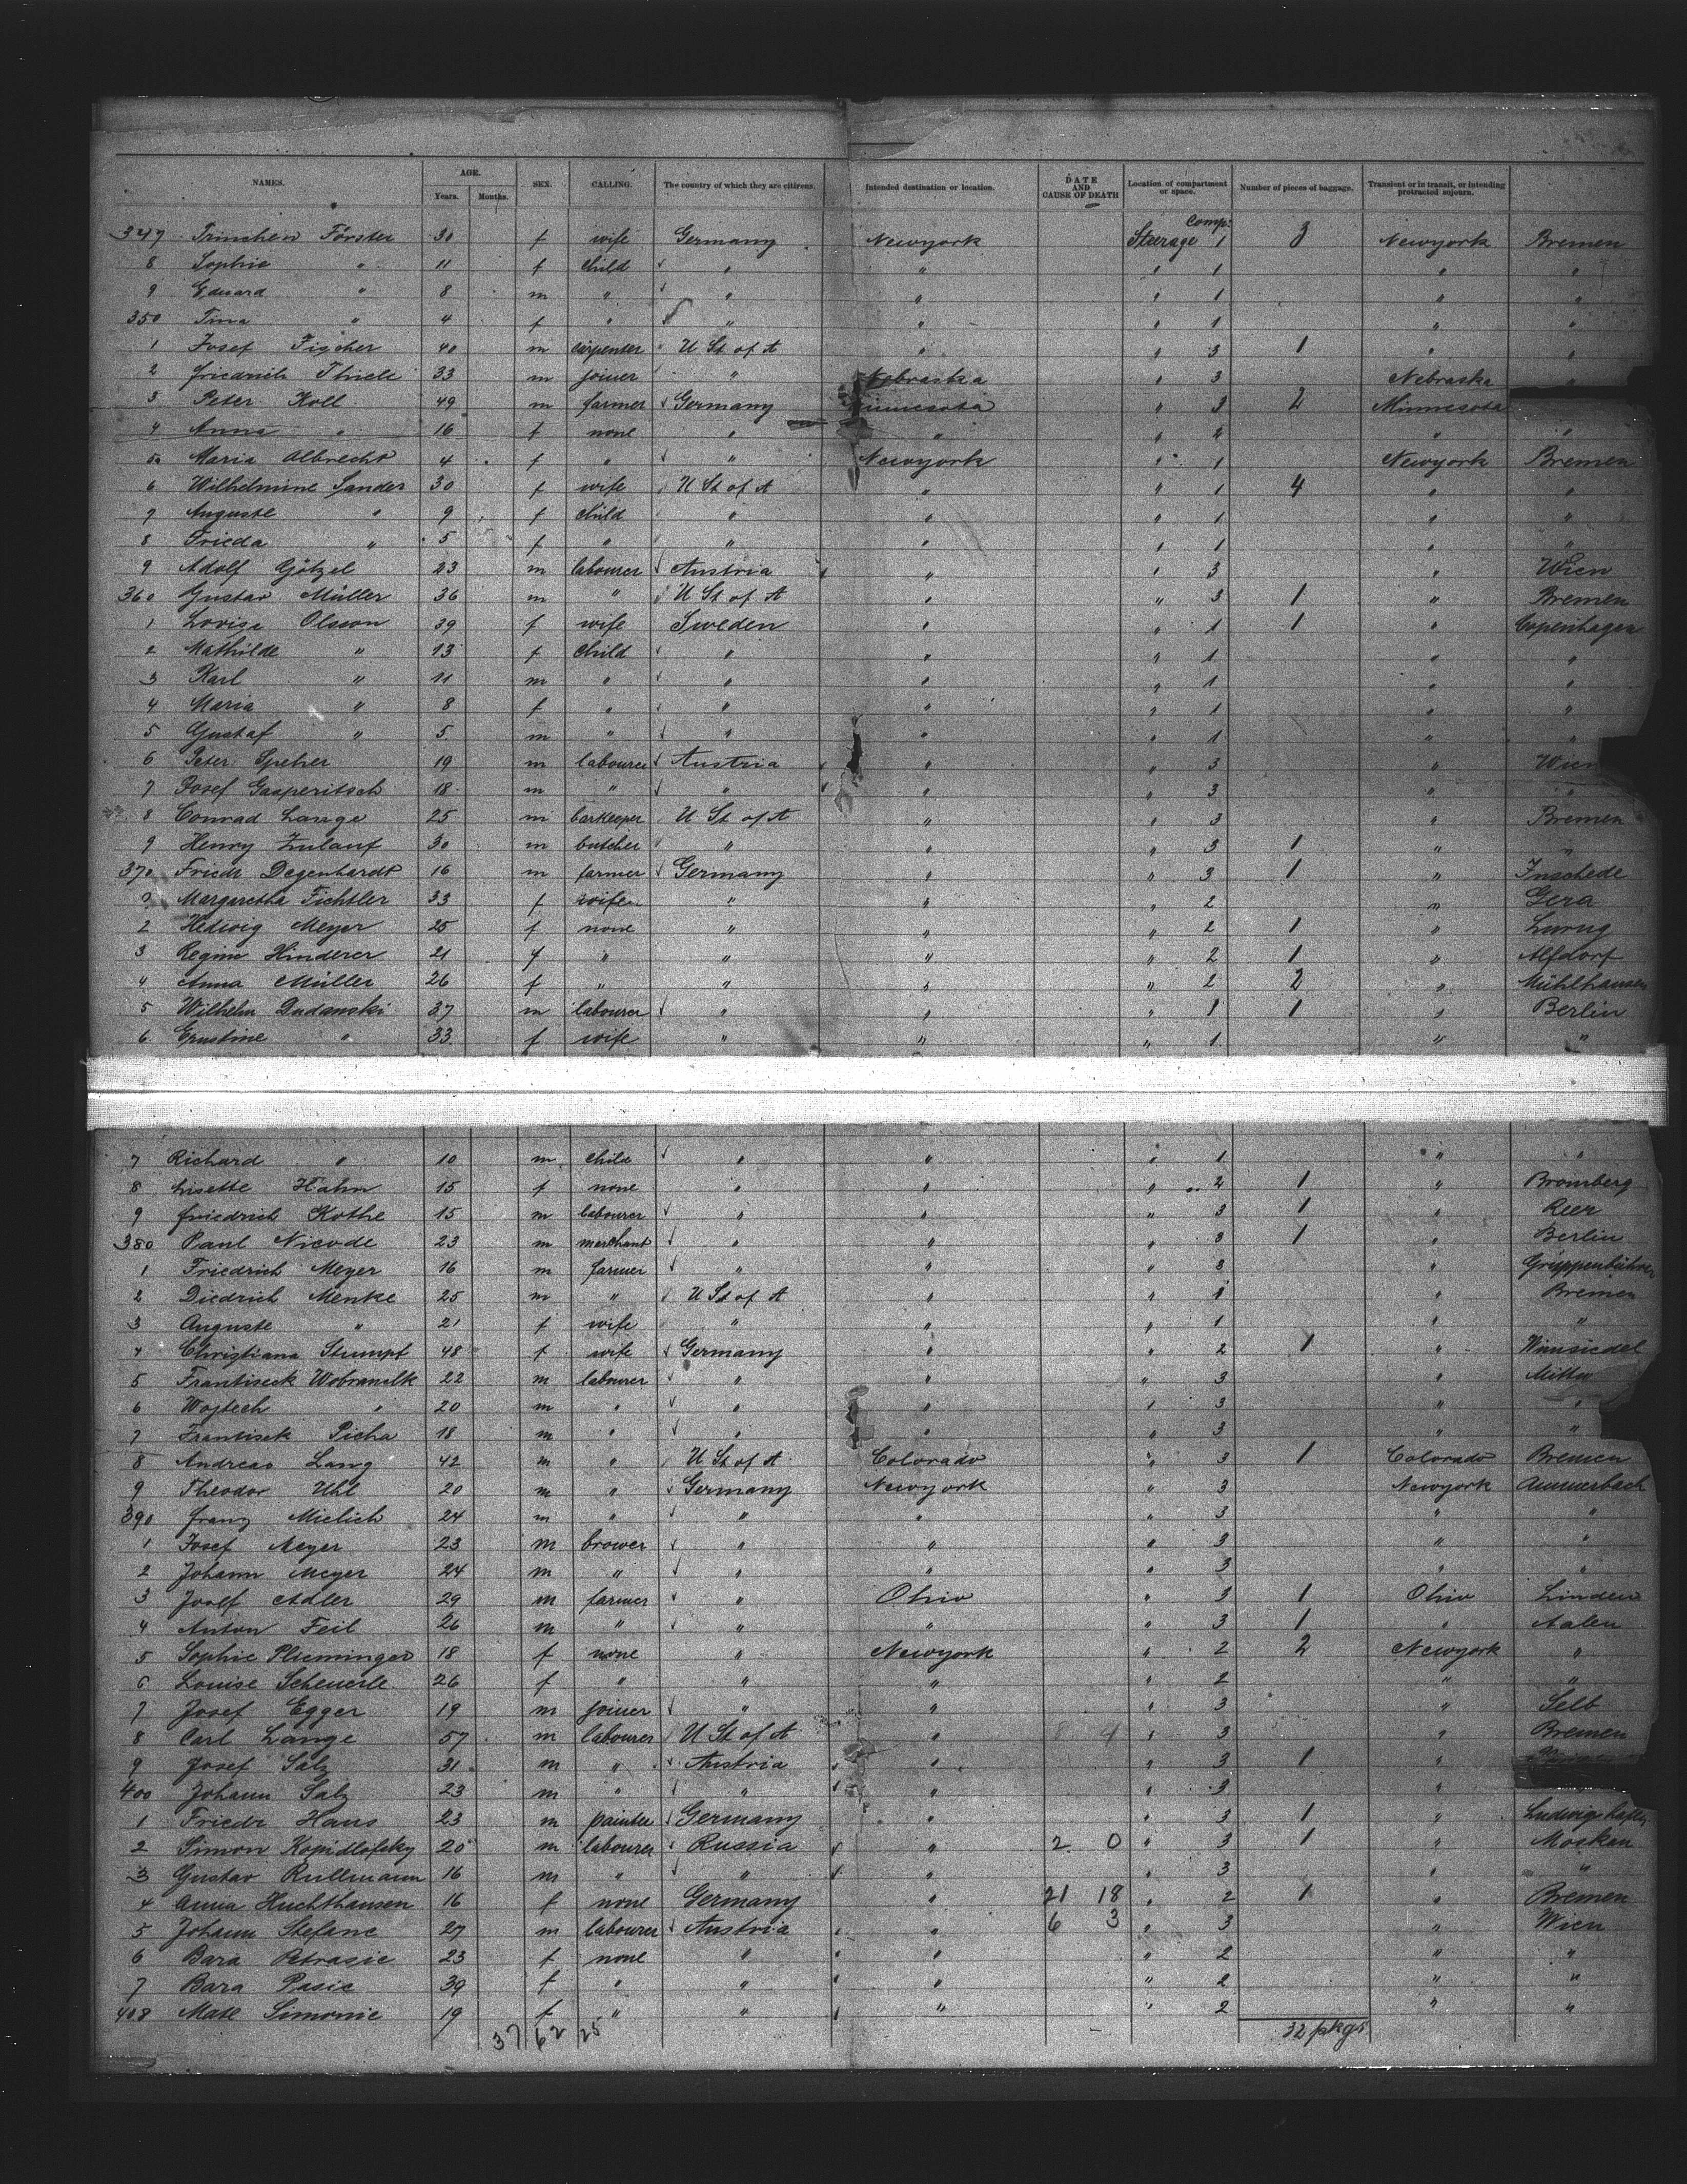 NAMES. AGE. Years. Months. SEX. CALLING. The country of which they are citizens. Intended destination or location. DATE AND CAUSE OF DEATH Location of compartment or space. Number of pieces of baggage. Transient or in transit, or intending protracted sojourn.
347 Trinchen Förster 30 f wife Germany Newyork Steerage Comp: 1 3 Newyork Bremen
8 Sophie " 11 f child " " " 1 " "
9 Eduard " 8 m " " " " 1 " "
350 Tina " 4 f " " " " 1 " "
1 Josef Fischer 40 m carpenter U St of A " " 3 1 " "
2 Friedrich Thiele 33 m joiner " Nebraska " 3 Nebraska "
3 Peter Koll 49 m farmer Germany Minnesota " 3 2 Minnesota
4 Anna " 16 f none " " " 2 " "
5 Maria Albrecht 4 f " " Newyork " 1 Newyork Bremen
6 Wilhelmine Sander 30 f wife U St of A " " 1 4 " "
7 Auguste " 9 f child " " " 1 " "
8 Frieda " 5 f " " " " 1 " "
9 Adolf Götzel 23 m labourer Austria " " 3 " Wien
360 Gustav Müller 36 m " U St of A " " 3 1 " Bremen
1 Lovisa Olsson 39 f wife Sweden " " 1 1 " Copenhagen
2 Mathilde " 13 f child " " " 1 " "
3 Karl " 11 m " " " " 1 " "
4 Maria " 8 f " " " " 1 " "
5 Gustaf " 5 m " " " " 1 " "
6 Peter Speher 19 m labourer Austria " " 3 " Wien
7 Josef Gasperitsch 18 m " " " " 3 " "
8 Conrad Lange 25 m barkeeper U St of A " " 3 " Bremen
9 Henry Zulauf 30 m butcher " " " 3 1 " "
370 Friedr Degenhardt 16 m farmer Germany " " 3 1 " Inschede
Margaretha Fichtler 33 f wife " " " 2 " Gera
2 Hedwig Meyer 25 f none " " " 2 1 "
3 Regine Hinderer 21 f " " " " 2 1 " Alfdorf
4 Anna Müller 26 f " " " " 2 2 " Mühlhausen
5 Wilhelm Dudanski 37 m labourer " " " 1 1 " Berlin
6 Ernstine " 33 f wife " " " 1 " "
7 Richard " 10 m child " " " 1 " "
8 Lisette Hahn 15 f none " " " 2 1 " Bromberg
9 Friedrich Kothe 15 m labourer " " " 3 1 " Reer
380 Paul Nicode 23 m merchant " " " 3 1 " Berlin
1 Friedrich Meyer 16 m farmer " " " 3 " Grüppenbühren
2 Diedrich Menke 25 m " U St of A " " 1 " Bremen
3 Auguste " 21 f wife " " " 1 " "
4 Christiana Stumpf 48 f wife Germany " " 2 1 " Wunsiedel
5 Frantiseck 22 m labourer " " " 3 "
6 Wojtech " 20 m " " " " 3 " "
7 Frantisek Picha 18 m " " " " 3 " "
8 Andreas Lang 42 m " U St of A Colorado " 3 1 Colorado Bremen
9 Theodor Uhl 20 m " Germany Newyork " 3 Newyork Ammerbach
390 Franz Mielich 24 m " " " " 3 " "
1 Josef Meyer 23 m brower " " " 3 " "
2 Johann Meyer 24 m " " " " 3 " "
3 Josef Adler 29 m farmer " Ohio " 3 1 Ohio Linden
4 Anton Feil 26 m " " " " 3 1 " Aalen
5 Sophie Plieninger 18 f none " Newyork " 2 2 Newyork "
6 Louise Scheuerle 26 f " " " " 2 " "
7 Josef Egger 19 m joiner " " " 3 " Selb
8 Carl Lange 57 m labourer U St of A " 8 4 " 3 " Bremen
9 Josef Salz 31 m " Austria " " 3 1 "
400 Johann Salz 23 m " " " " 3 "
1 Friedr Haus 23 m painter Germany " " 3 1 " Ludwigshafen
2 Simon Kopidlofsky 20 m labourer Russia " 2 0 " 3 1 " Moskau
3 Gustav Rullmann 16 m " " " " 3 " "
4 Anna Huchthausen 16 f none Germany " 21 18 " 2 1 " Bremen
5 Johann Stefanc 27 m labourer Austria " 6 3 " 3 " Wien
6 Bara Petrasic 23 f none " " " 2 " "
7 Bara Pasic 39 f " " " " 2 " "
408 Mate Simonic 19 f " " " " 2 " "
37 62 25 32 pkgs